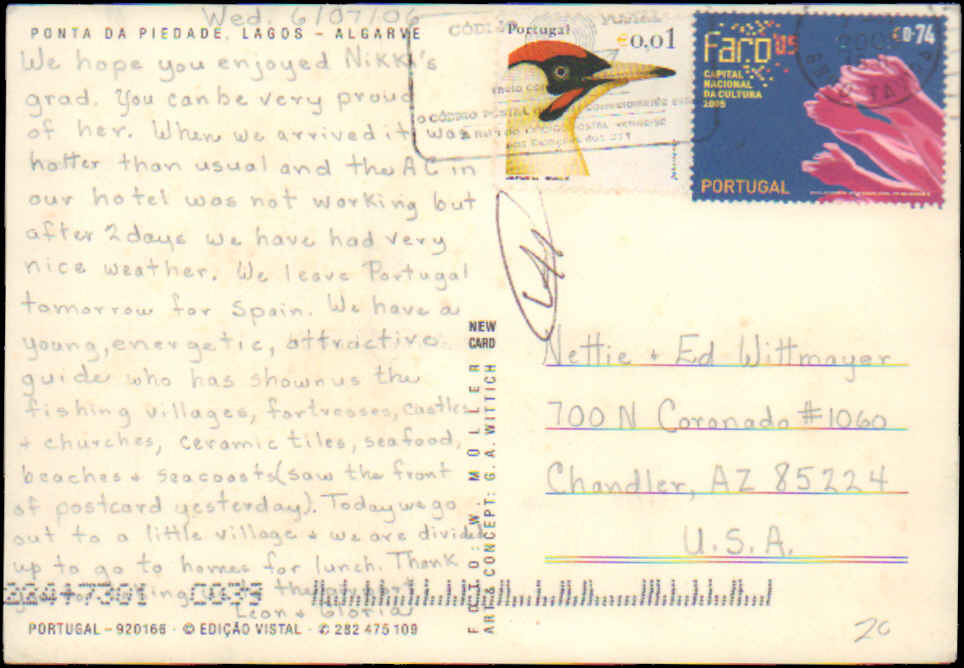 Wed. 6/07/06
PONTA DA PIEDADE, LAGOS - ALGARVE
We hope you enjoyed Nikki's
grad. You can be very proud
of her. When we arrived it was
hotter than usual and the AC in
our hotel was not working but
after 2 days we have had very
nice weather. We leave Portugal
tomorrow for Spain. We have a
young, energetic, attractive
guide who has shown us the
fishing villages, fortresses, castles
+ churches, ceramic tiles, seafood,
beaches + seacoasts (saw the front
of postcard yesterday). Today we go
out to a little village + we are divided
up to go to homes for lunch. Thank
Leon + Gloria
224+7301 C039
PORTUGAL - 920166 · © EDIÇÃO VISTAL · ✆ 282 475 109
NEW
CARD
FOTO: W. MÖLLER
ART & CONCEPT: G. A. WITTICH
Portugal
€0,01
O CÓDIGO POSTAL
Faro '05
€0.74
CAPITAL
NACIONAL
DA CULTURA
2005
PORTUGAL
Nettie + Ed Wittmayer
700 N Coronado #1060
Chandler, AZ 85224
U.S.A.
20